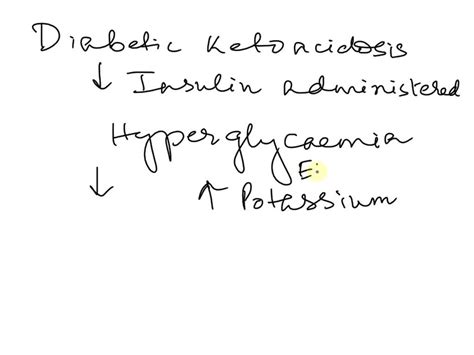 Diabetic Ketoacidosis
↓ Insulin administered
Hyperglycaemia
E:
↓ ↑ Potassium